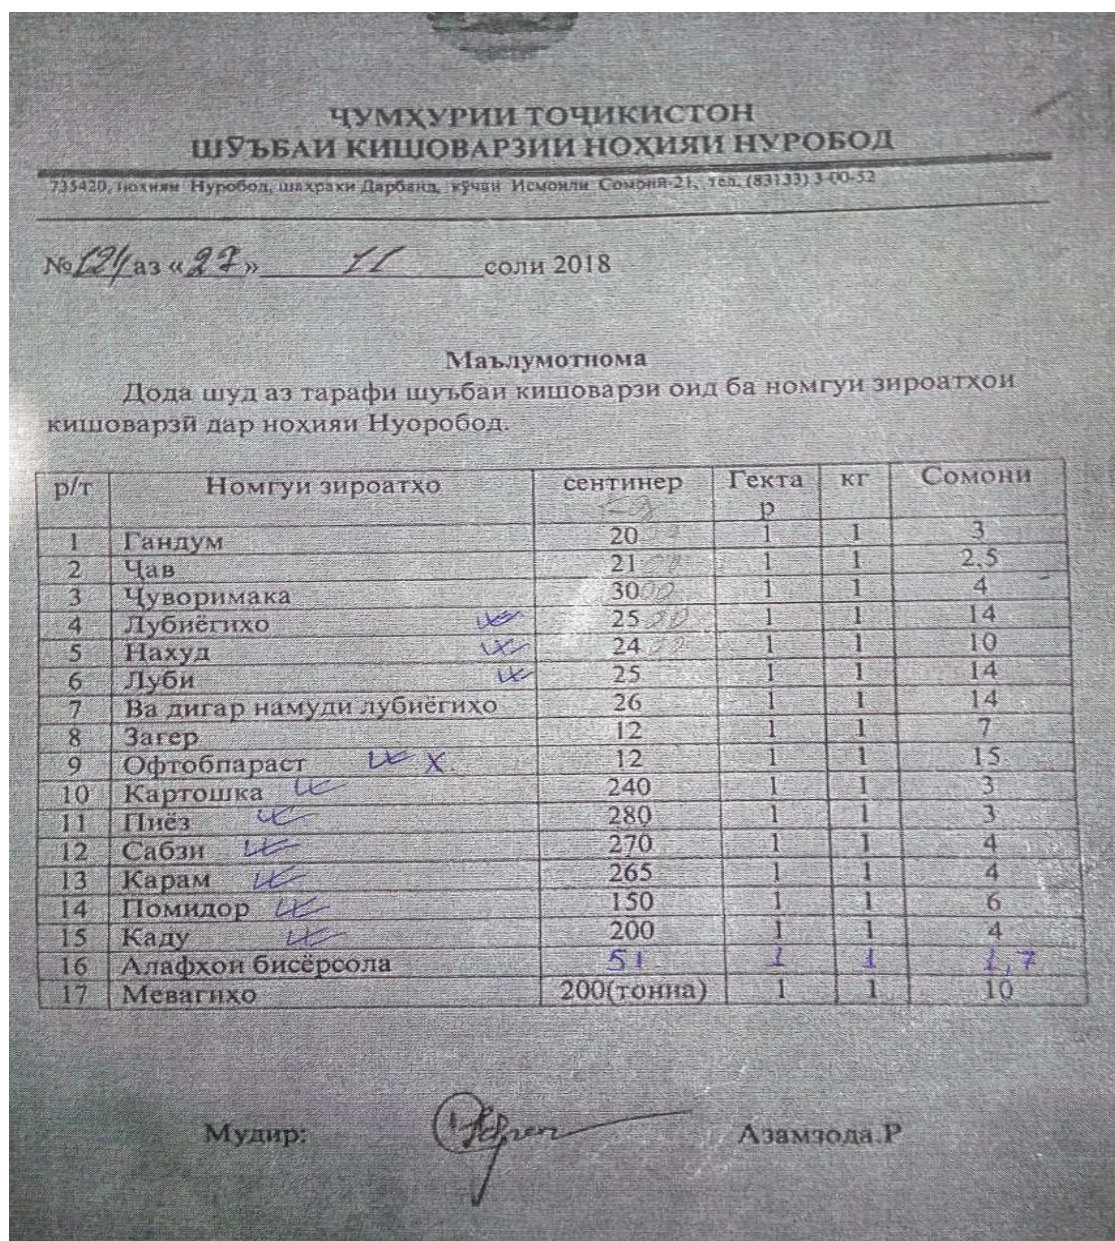 ҶУМҲУРИИ ТОҶИКИСТОН
ШӮЪБАИ КИШОВАРЗИИ НОҲИЯИ НУРОБОД
735420, ноҳияи Нуробод, шаҳраки Дарбанд, кӯчаи Исмоили Сомонӣ-21, тел. (83133) 3-00-52
№ 124 аз «27» 11 соли 2018
Маълумотнома
Дода шуд аз тарафи шуъбаи кишоварзи оид ба номгуи зироатҳои
кишоварзӣ дар ноҳияи Нуоробод.
р/т Номгуи зироатҳо сентинер Гектар кг Сомони
1 Гандум 20 1 1 3
2 Ҷав 21 1 1 2,5
3 Ҷуворимака 30 1 1 4
4 Лубиёгиҳо 25 1 1 14
5 Нахуд 24 1 1 10
6 Луби 25 1 1 14
7 Ва дигар намуди лубиёгиҳо 26 1 1 14
8 Загер 12 1 1 7
9 Офтобпараст х 12 1 1 15
10 Картошка 240 1 1 3
11 Пиёз 280 1 1 3
12 Сабзи 270 1 1 4
13 Карам 265 1 1 4
14 Помидор 150 1 1 6
15 Каду 200 1 1 4
16 Алафҳои бисёрсола 51 1 1 1,7
17 Мевагиҳо 200(тонна) 1 1 10
Мудир: Азамзода.Р